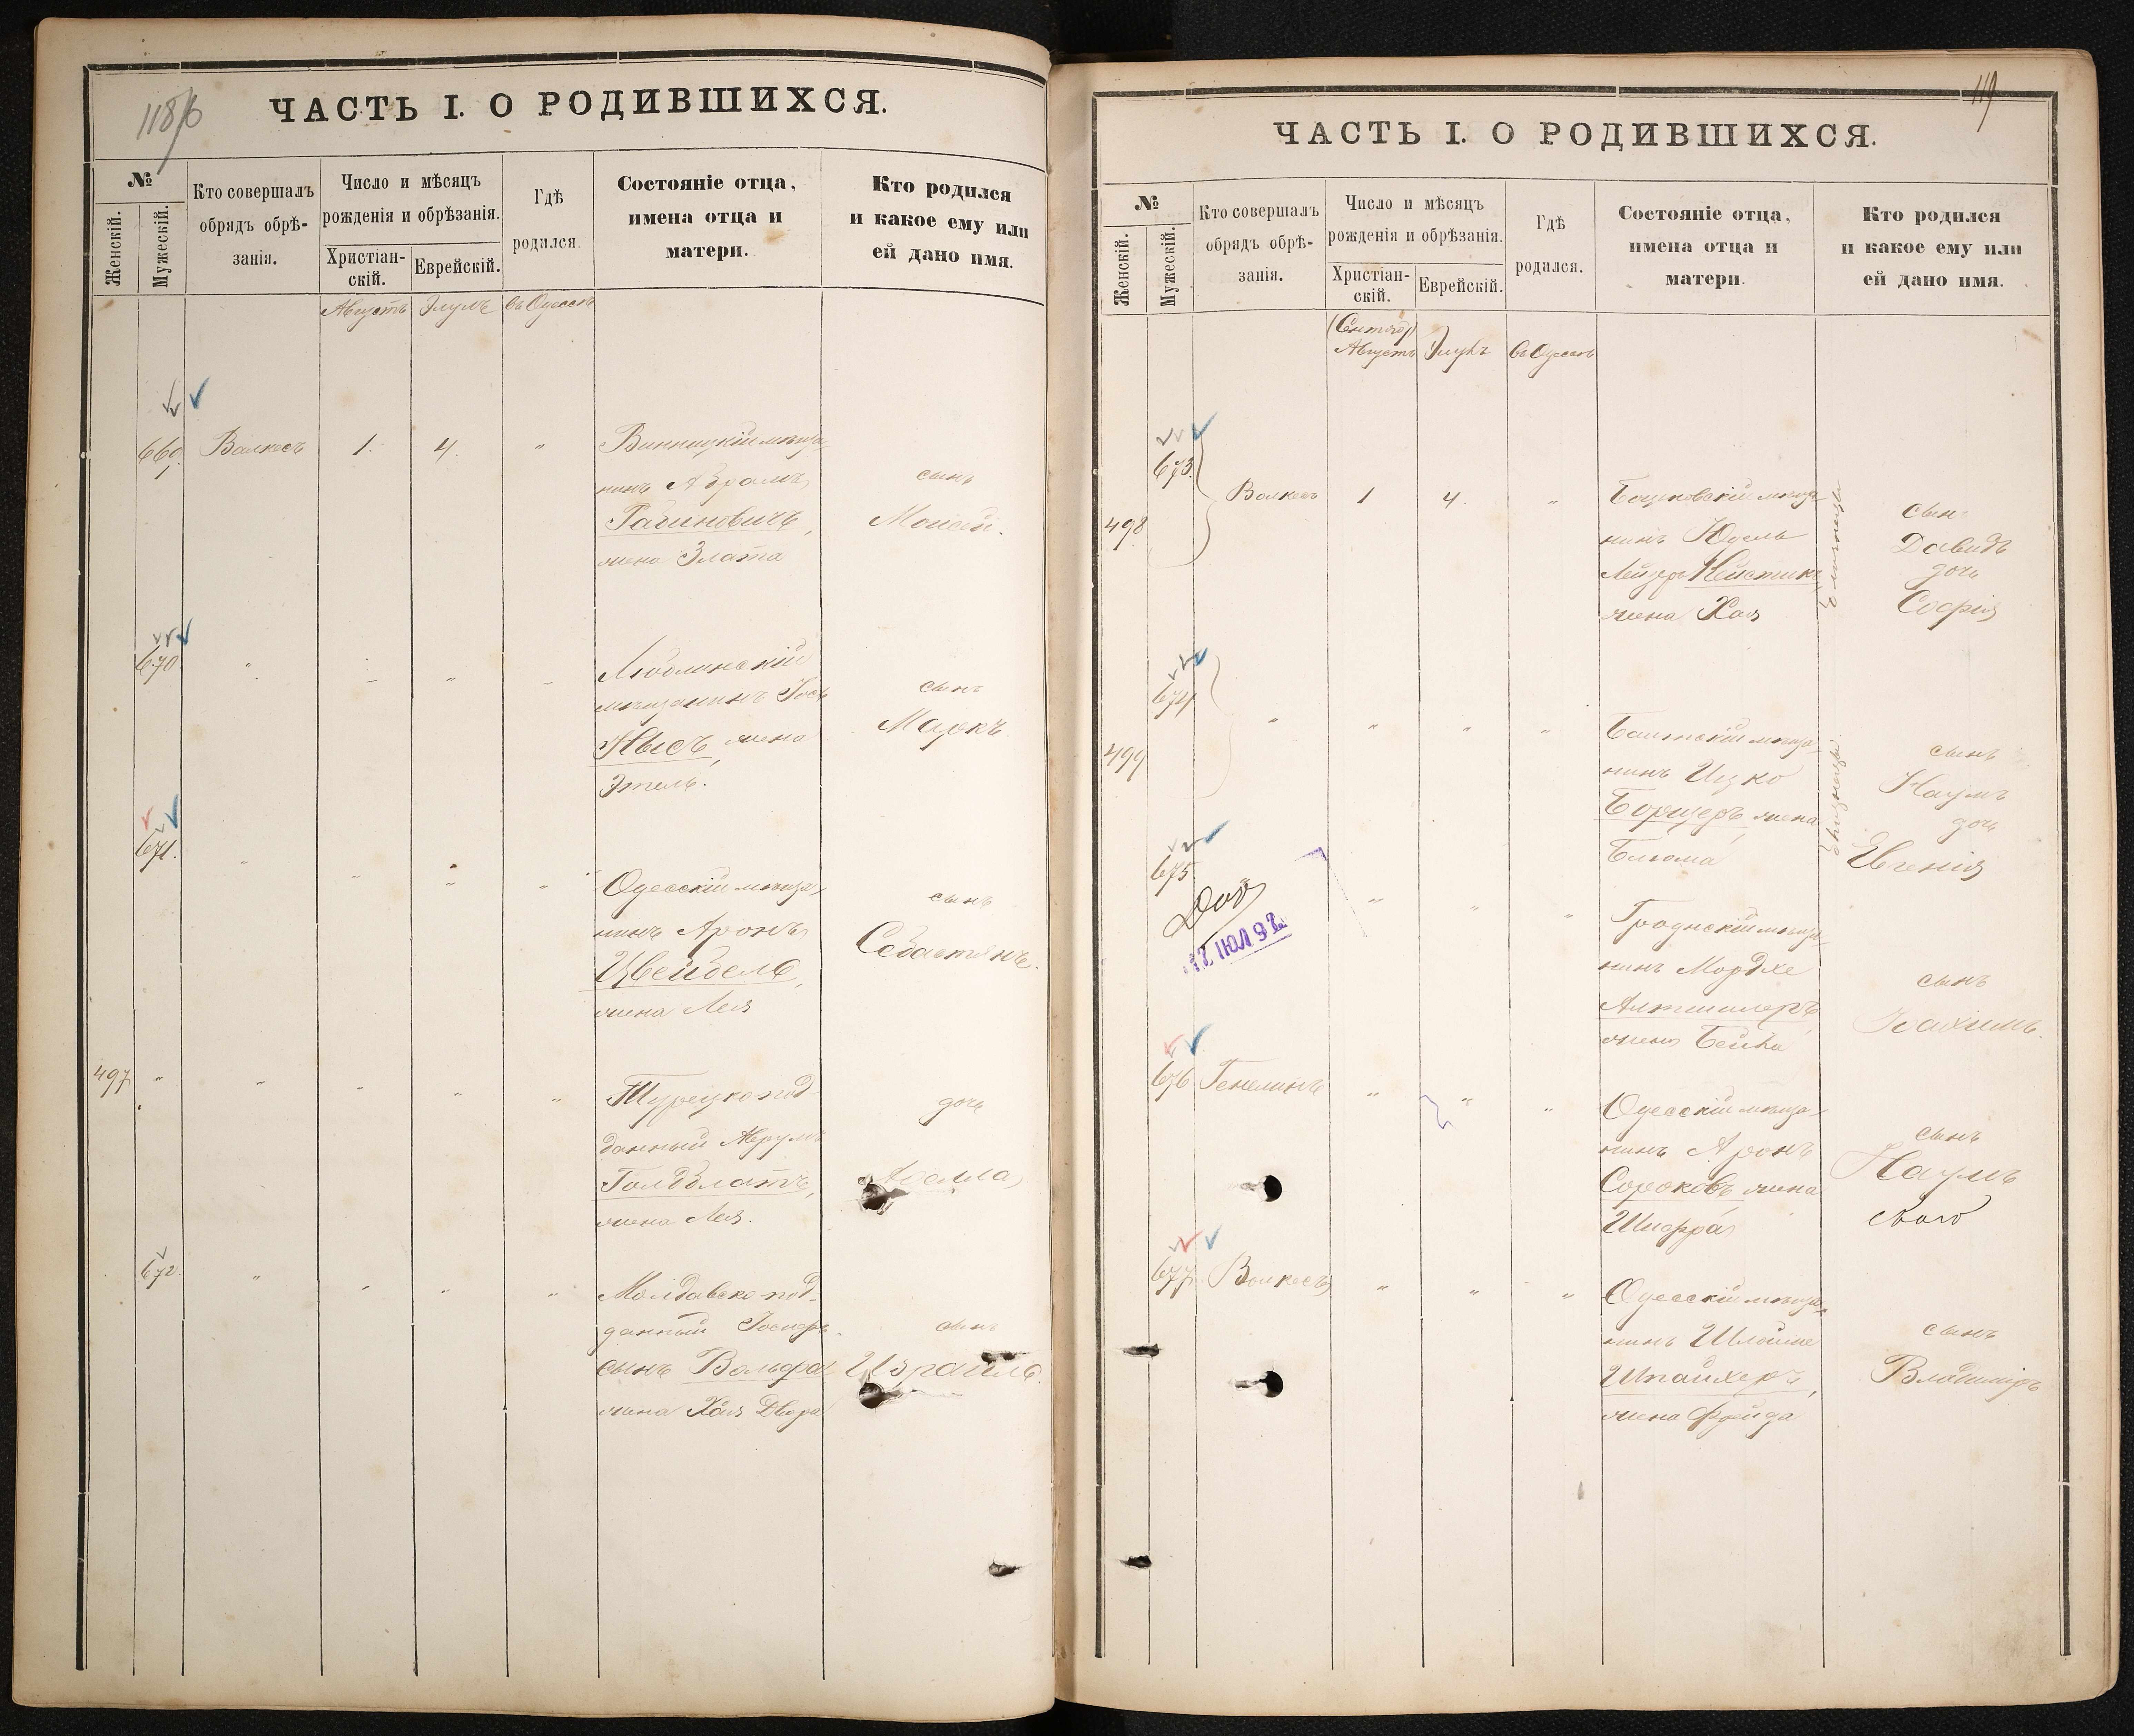 118/об
ЧАСТЬ I. О РОДИВШИХСЯ.
№
Женскій.
Мужескій.
Кто совершалъ
обрядъ обрѣ-
занія.
Число и мѣсяцъ
рожденія и обрѣзанія.
Христіан-
скій.
Еврейскій.
Гдѣ
родился.
Состояніе отца,
имена отца и
матери.
Кто родился
и какое ему или
ей дано имя.
Августъ Элулъ въ Одессѣ
669. Валкесъ 1. 4. " Винницкій мѣща-
нинъ Абрамъ
Рабиновичъ,
жена Злата
сынъ
Моисей.
670 " " " " Люблинскій
мѣщанинъ Іось
Нысъ, жена
Этель.
сынъ
Маркъ.
671. " " " " Одесскій мѣща-
нинъ Аронъ
Цвейбель,
жена Лея
сынъ
Себастянъ.
497 " " " " " Турецко под-
данный Аврумъ
Голдблатъ,
жена Лея.
дочь
672. " " " " Молдавско-под-
данный Іосифъ
сынъ Вольфа
жена Хая Двора
сынъ
Израиль.
119
ЧАСТЬ I. О РОДИВШИХСЯ.
№
Женскій.
Мужескій.
Кто совершалъ
обрядъ обрѣ-
занія.
Число и мѣсяцъ
рожденія и обрѣзанія.
Христіан-
скій.
Еврейскій.
Гдѣ
родился.
Состояніе отца,
имена отца и
матери.
Кто родился
и какое ему или
ей дано имя.
Августъ Элулъ въ Одессѣ
673
498 Валкесъ 1 4. " мѣща-
нинъ Юдель
Лейзеръ
жена Хая
близнецы
сынъ
Давидъ
дочь
Софія
674
499 " " " " Балтскій мѣща-
нинъ Ицко
Борщеръ, жена
Блюма
близнецы
сынъ
Наумъ
дочь
Евгенія
675
12 ИЮЛ 92
" " " Гроднскій мѣща-
нинъ Мордхе
Альтшилеръ
жена Бейла
сынъ
Іоахимъ.
676 Генелинъ " " " Одесскій мѣща-
нинъ Аронъ
Сороковъ жена
Шифра
сынъ
Наумъ
677 Валкесъ " " " Одесскій мѣща-
нинъ Шлойме
Шпайхеръ,
жена Фрейда
сынъ
Владиміръ